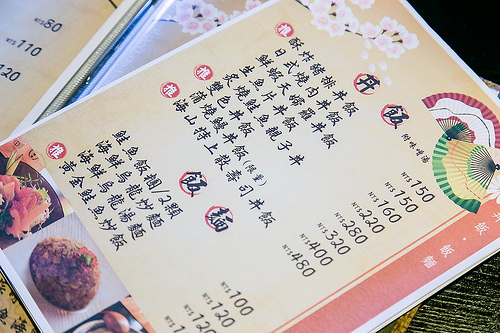 丼飯 附味噌湯
推 酥炸豬排丼飯 NT$150
日式燒肉丼飯 NT$150
鮮蝦天婦羅丼飯 NT$160
生魚片丼飯 NT$220
炙燒鮭魚親子丼 NT$280
推 雙色丼飯 NT$320
推 蒲燒鰻丼飯(限量) NT$400
推 海山特上散壽司丼飯 NT$480
飯麵
鮭魚飯糰/2顆 NT$100
海鮮烏龍炒麵 NT$120
海鮮烏龍湯麵 NT$120
推 黃金鮭魚炒飯 NT$1
丼飯・飯麵
NT$80
NT$110
120